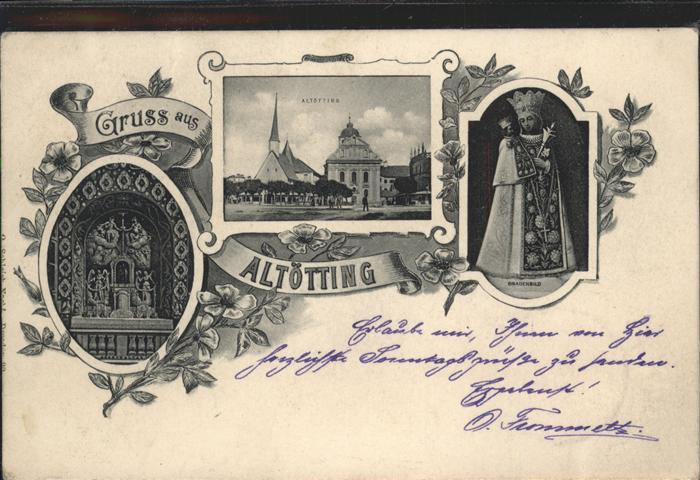 Gruss aus
ALTÖTTING
ALTÖTTING
GNADENBILD
Erlaube mir, Ihnen von hier
herzlichste Sonntagsgrüsse zu senden.
Ergebenst!
O. Frommelt.